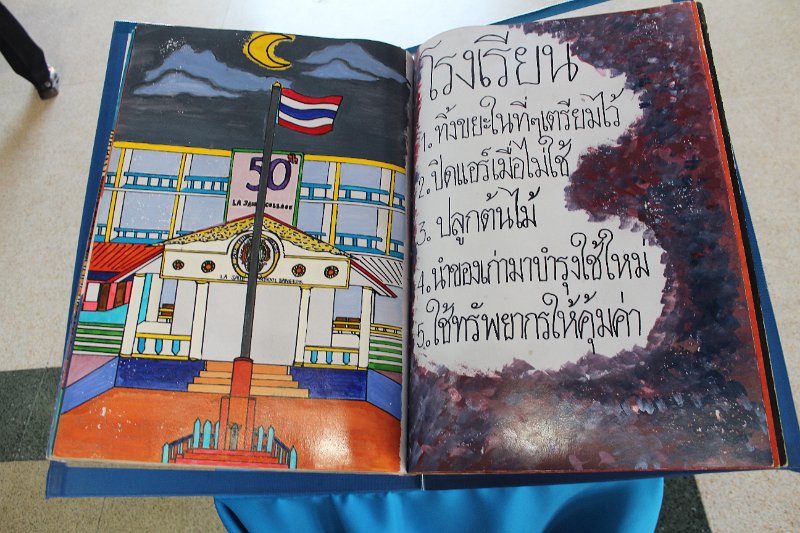 50th
LA SALLE COLLEGE
LA SALLE SCHOOL BANGKOK
โรงเรียน
1. ทิ้งขยะในที่ๆเตรียมไว้
2. ปิดแอร์เมื่อไม่ใช้
3. ปลูกต้นไม้
4. นำของเก่ามาบำรุงใช้ใหม่
5. ใช้ทรัพยากรให้คุ้มค่า